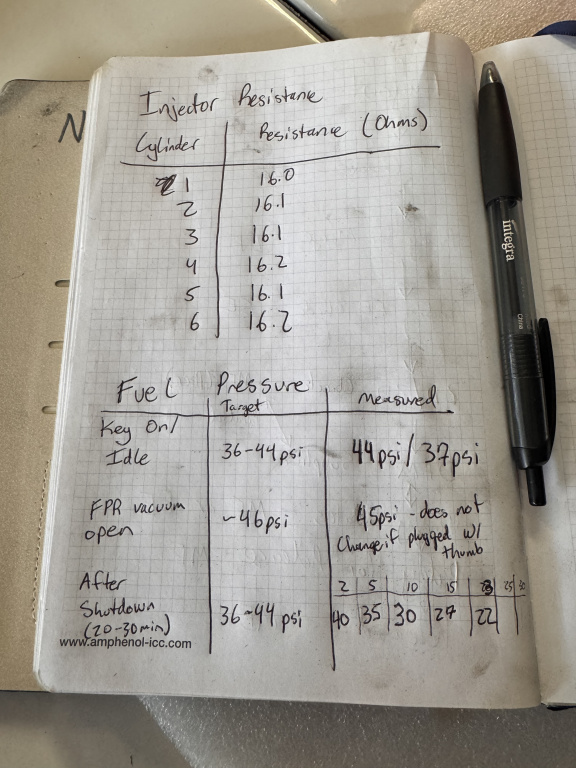 Injector Resistance
Cylinder Resistance (Ohms)
1 16.0
2 16.1
3 16.1
4 16.2
5 16.1
6 16.2
Fuel Pressure
Target Measured
Key On/
Idle 36-44psi 44psi/37psi
FPR vacuum
open ~46psi 45psi - does not
Change if plugged w/
thumb
After
Shutdown
(20-30min) 36-44 psi
2 5 10 15 25 30
40 35 30 27 22
www.amphenol-icc.com
N
integra
China